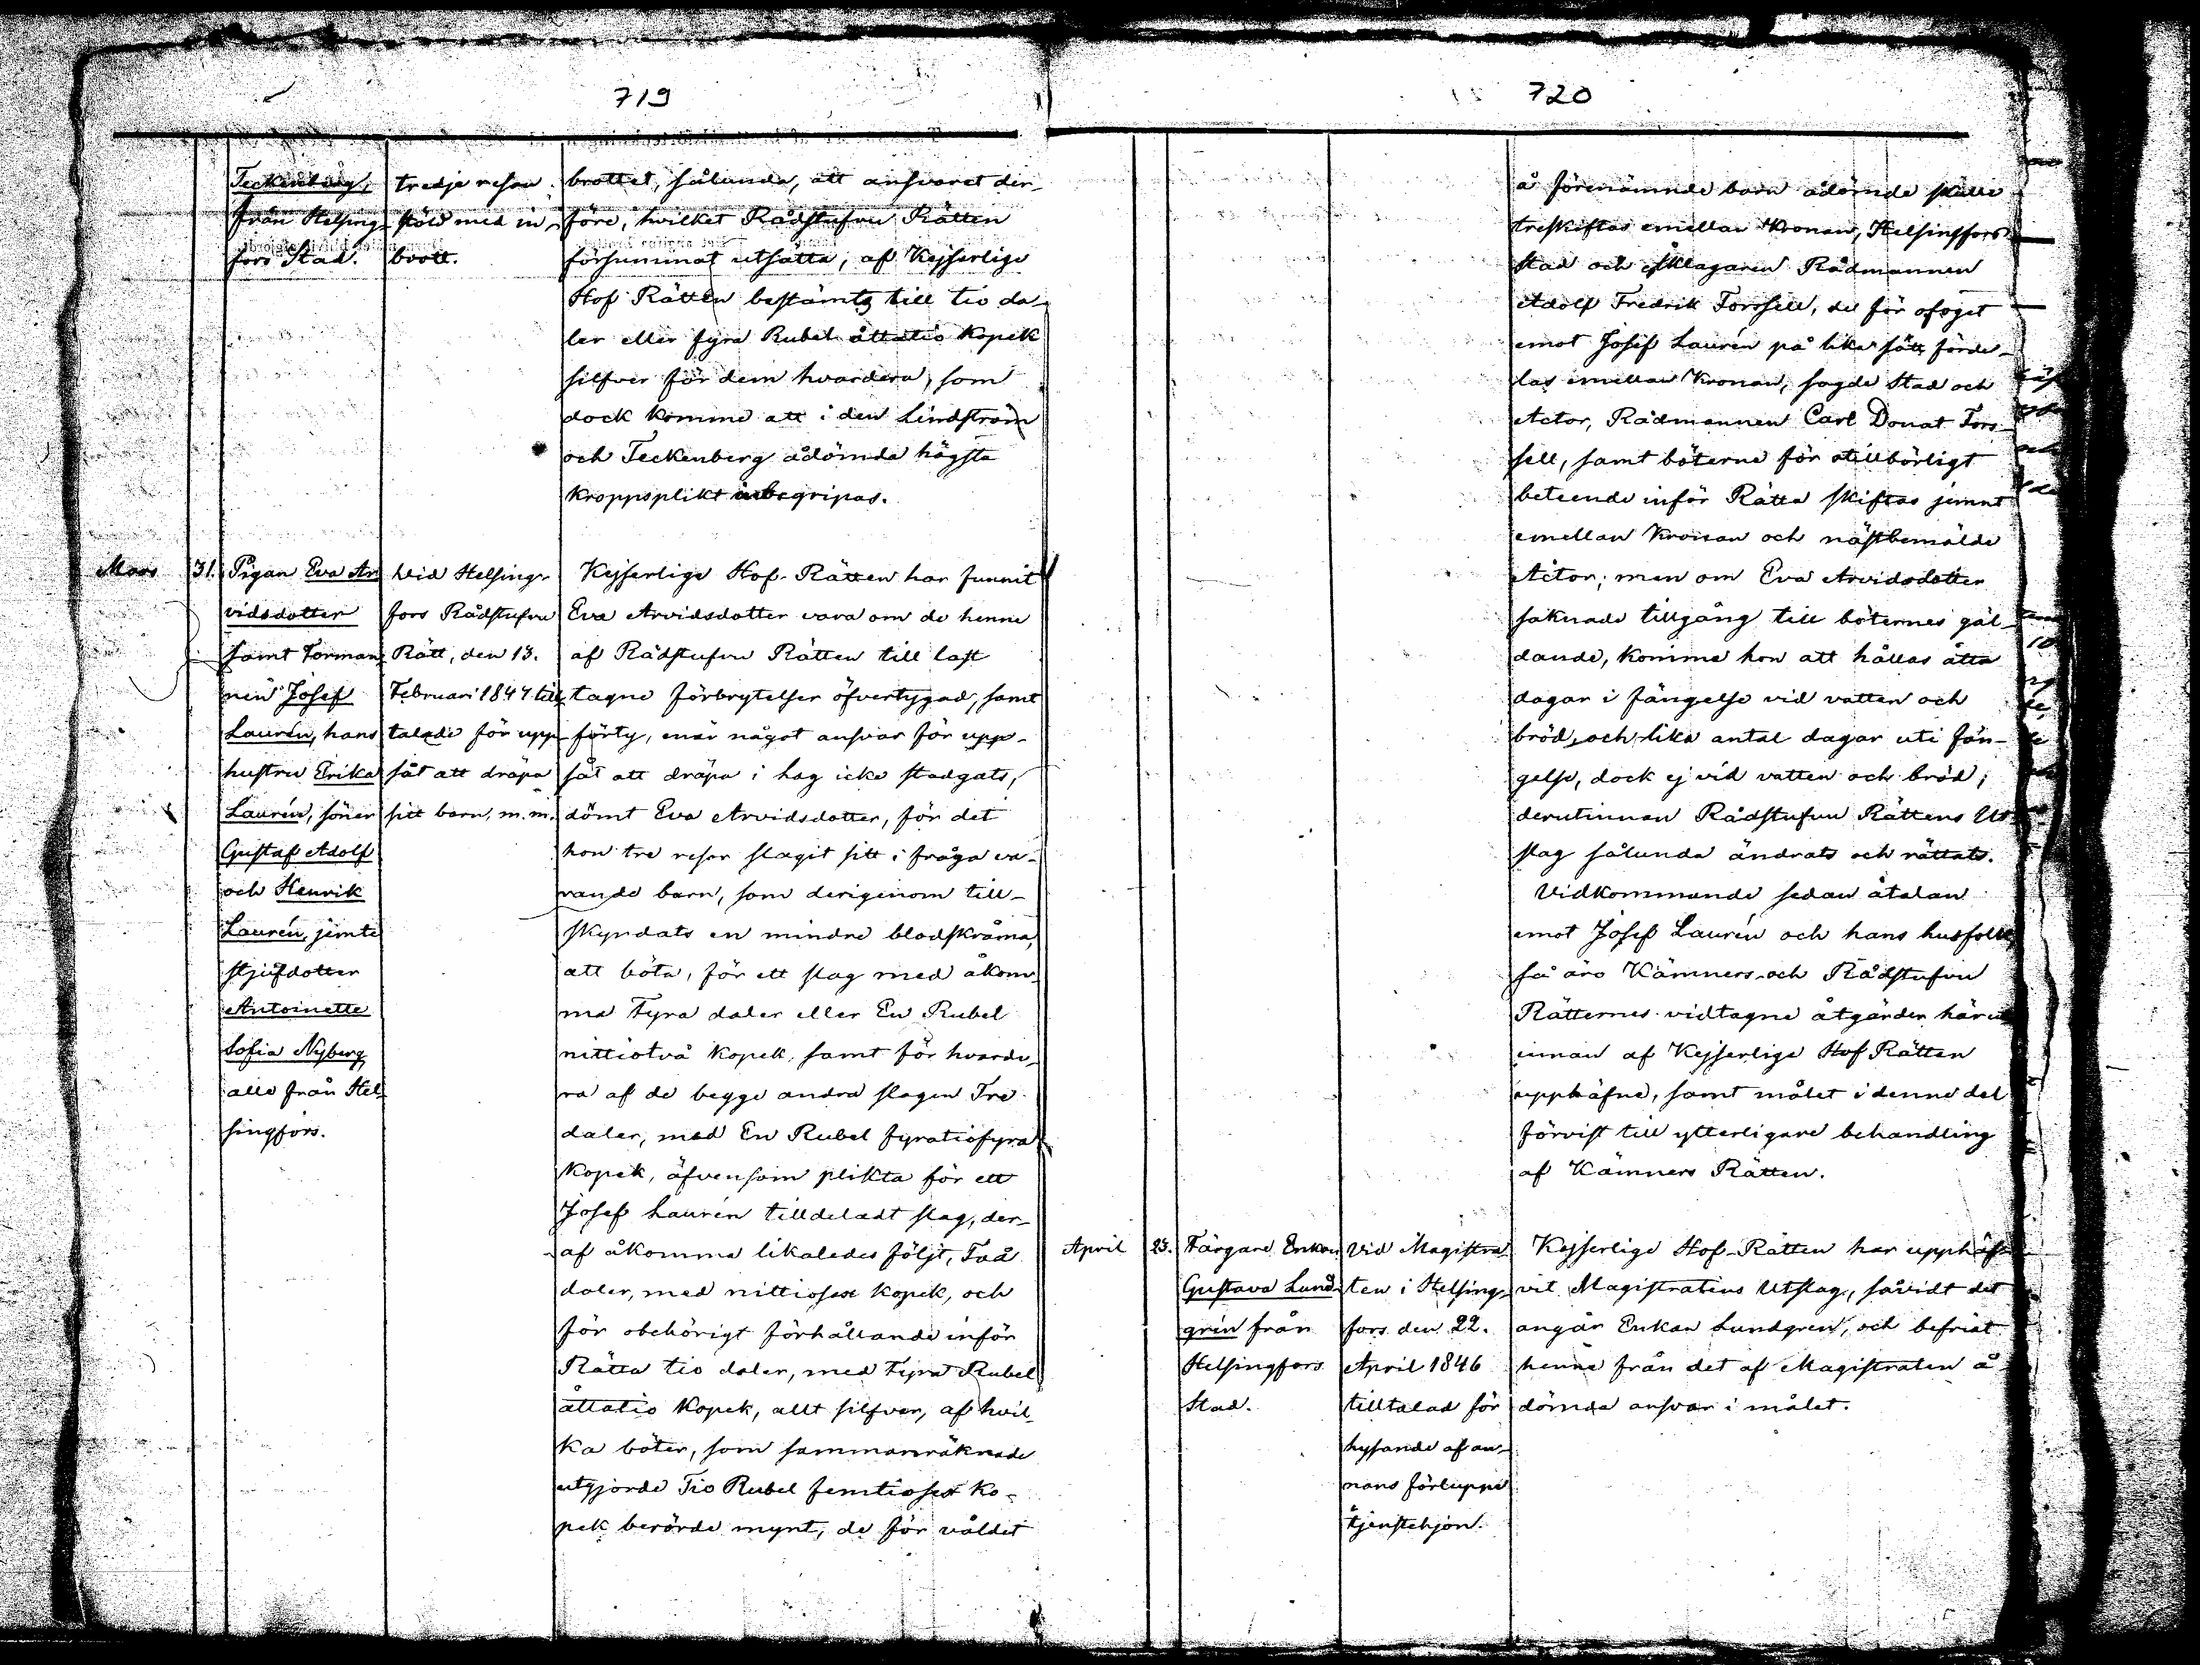 719
Teckenberg,
från Helsing-
fors Stad.
tredje resan
stöld med in-
brott.
brottet, sålunda, att ansvaret der-
före, hvilket Rådstufvu Rätten
försummat utsätta, af Kejserlige
Hof Rätten bestämts till tio da-
ler eller fyra Rubel åttatio kopek
silfver för dem hvardera, som
dock komme att i den Lindström
och Teckenberg ådömda högsta
kroppsplikt inbegripas.
Mars
31.
Pigan Eva Ar-
vidsdotter
samt Forman-
nen Josef
Laurén, hans
hustru Erika
Laurén, söner
Gustaf Adolf
och Henrik
Laurén, jemte
stjufdotter
Antoinette
Sofia Nyberg
alle från Hel-
singfors.
Vid Helsing-
fors Rådstufvu
Rätt, den 13.
Februari 1847 till-
talade för upp-
såt att dräpa
sitt barn, m. m.
Kejserlige Hof-Rätten har funnit
Eva Arvidsdotter vara om de henne
af Rådstufvu Rätten till last
tagne förbrytelser öfvertygad, samt
förty, enär något ansvar för upp-
såt att dräpa i lag icke stadgats,
dömt Eva Arvidsdotter, för det
hon tre resor slagit sitt i fråga va-
rande barn, som derigenom till-
skyndats en mindre blodskråma,
att böta, för ett slag med åkom-
ma Fyra daler eller En Rubel
nittiotvå kopek, samt för hvarde-
ra af de begge andra slagen Tre
daler, med En Rubel fyratiofyra
kopek, äfvensom plikta för ett
Josef Laurén tilldeladt slag, der-
af åkomma likaledes följt, Två
daler, med nittiosex kopek, och
för obehörigt förhållande inför
Rätta tio daler, med Fyra Rubel
åttatio kopek, allt silfver, af hvil-
ka böter, som sammanräknade
utgjorde Tio Rubel femtiosex ko-
pek berörde mynt, de för våldet
720
å förenämnde barn ådömde skulle
treskiftas emellan Kronan, Helsingfors
Stad och åklagaren Rådmannen
Adolf Fredrik Forssell, de för ofoget
emot Josef Laurén på lika sätt förde-
las emellan Kronan, sagde Stad och
Actor, Rådmannen Carl Donat Fors-
sell, samt böterne för otillbörligt
beteende inför Rätta skiftas jemnt
emellan Kronan och nästbemälde
Actor; men om Eva Arvidsdotter
saknade tillgång till böternes gäl-
dande, komme hon att hållas åtta
dagar i fängelse vid vatten och
bröd, och lika antal dagar uti fän-
gelse, dock ej vid vatten och bröd;
derutinnan Rådstufvu Rättens Ut-
slag sålunda ändrats och rättats.
Vidkommande sedan åtalan
emot Josef Laurén och hans husfolk
så äro Kämners och Rådstufvu
Rätternes vidtagne åtgärder härut-
innan af Kejserlige Hof Rätten
upphäfne, samt målet i denne del
förvist till ytterligare behandling
af Kämners Rätten.
April
23.
Färgare Enkan
Gustava Lund-
grén från
Helsingfors
Stad.
Vid Magistra-
ten i Helsing-
fors den 22.
April 1846
tilltalad för
hysande af an-
nans förlupne
tjenstehjon.
Kejserlige Hof-Rätten har upphäf-
vit Magistratens Utslag, såvidt det
angår Enkan Lundgren, och befriat
henne från det af Magistraten å-
dömda ansvar i målet.